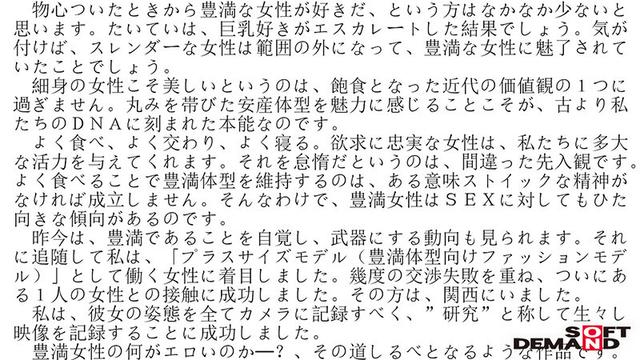 物心ついたときから豊満な女性が好きだ、という方はなかなか少ないと
思います。たいていは、巨乳好きがエスカレートした結果でしょう。気が
付けば、スレンダーな女性は範囲の外になって、豊満な女性に魅了されて
いたことでしょう。
細身の女性こそ美しいというのは、飽食となった近代の価値観の１つに
過ぎません。丸みを帯びた安産体型を魅力に感じることこそが、古より私
たちのＤＮＡに刻まれた本能なのです。
よく食べ、よく交わり、よく寝る。欲求に忠実な女性は、私たちに多大
な活力を与えてくれます。それを怠惰だというのは、間違った先入観です。
よく食べることで豊満体型を維持するのは、ある意味ストイックな精神が
なければ成立しません。そんなわけで、豊満女性はＳＥＸに対してもひた
向きな傾向があるのです。
昨今は、豊満であることを自覚し、武器にする動向も見られます。それ
に追随して私は、「プラスサイズモデル（豊満体型向けファッションモデ
ル）」として働く女性に着目しました。幾度の交渉失敗を重ね、ついにあ
る１人の女性との接触に成功しました。その方は、関西にいました。
私は、彼女の姿態を全てカメラに記録すべく、”研究”と称して生々し
い映像を記録することに成功しました。
豊満女性の何がエロいのか―？、その道しるべとなるような作品です。
SOFT
DEMAND